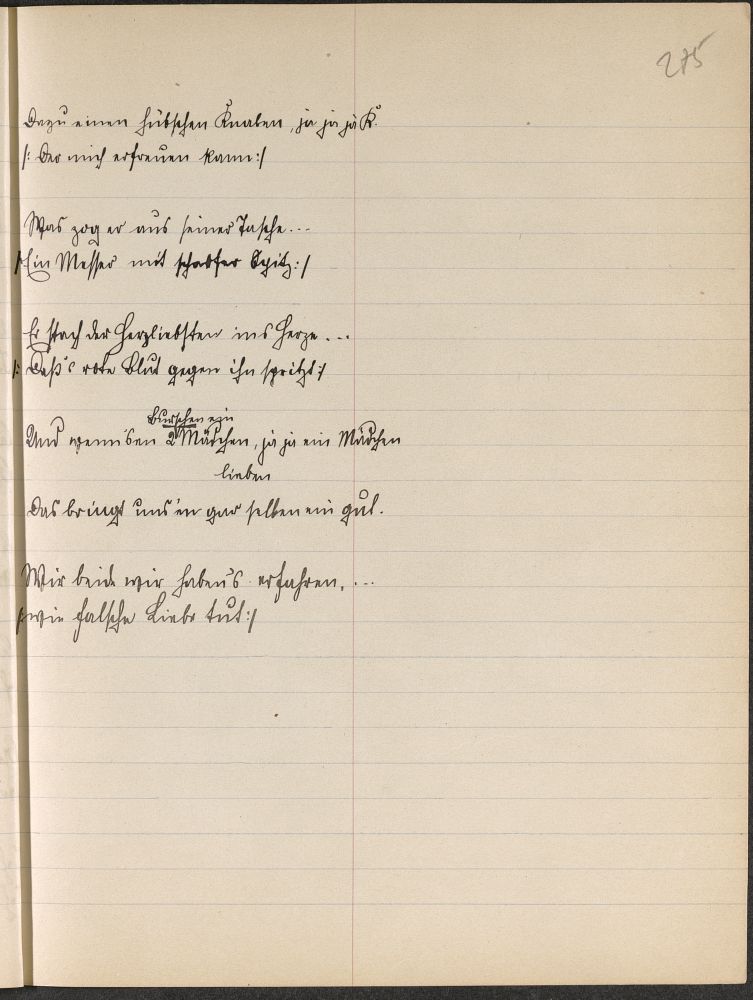 275
Dazu einen hübschen Knaben, ja ja ja K.
/: Der mich erfreuen kann :/
Was zog er aus seiner Tasche...
/: Ein Messer mit scharfer Spitz :/
Er stach der Herzliebsten ins Herze...
/: Daß's rote Blut gegen ihn spritzt :/
Burschen ein
Und wenn 2 Mädchen, ja ja ein Mädchen
lieben
Das bringt uns gar selten ein gut.
Wir beide wir haben's erfahren, ...
/: wie falsche Liebe tut :/